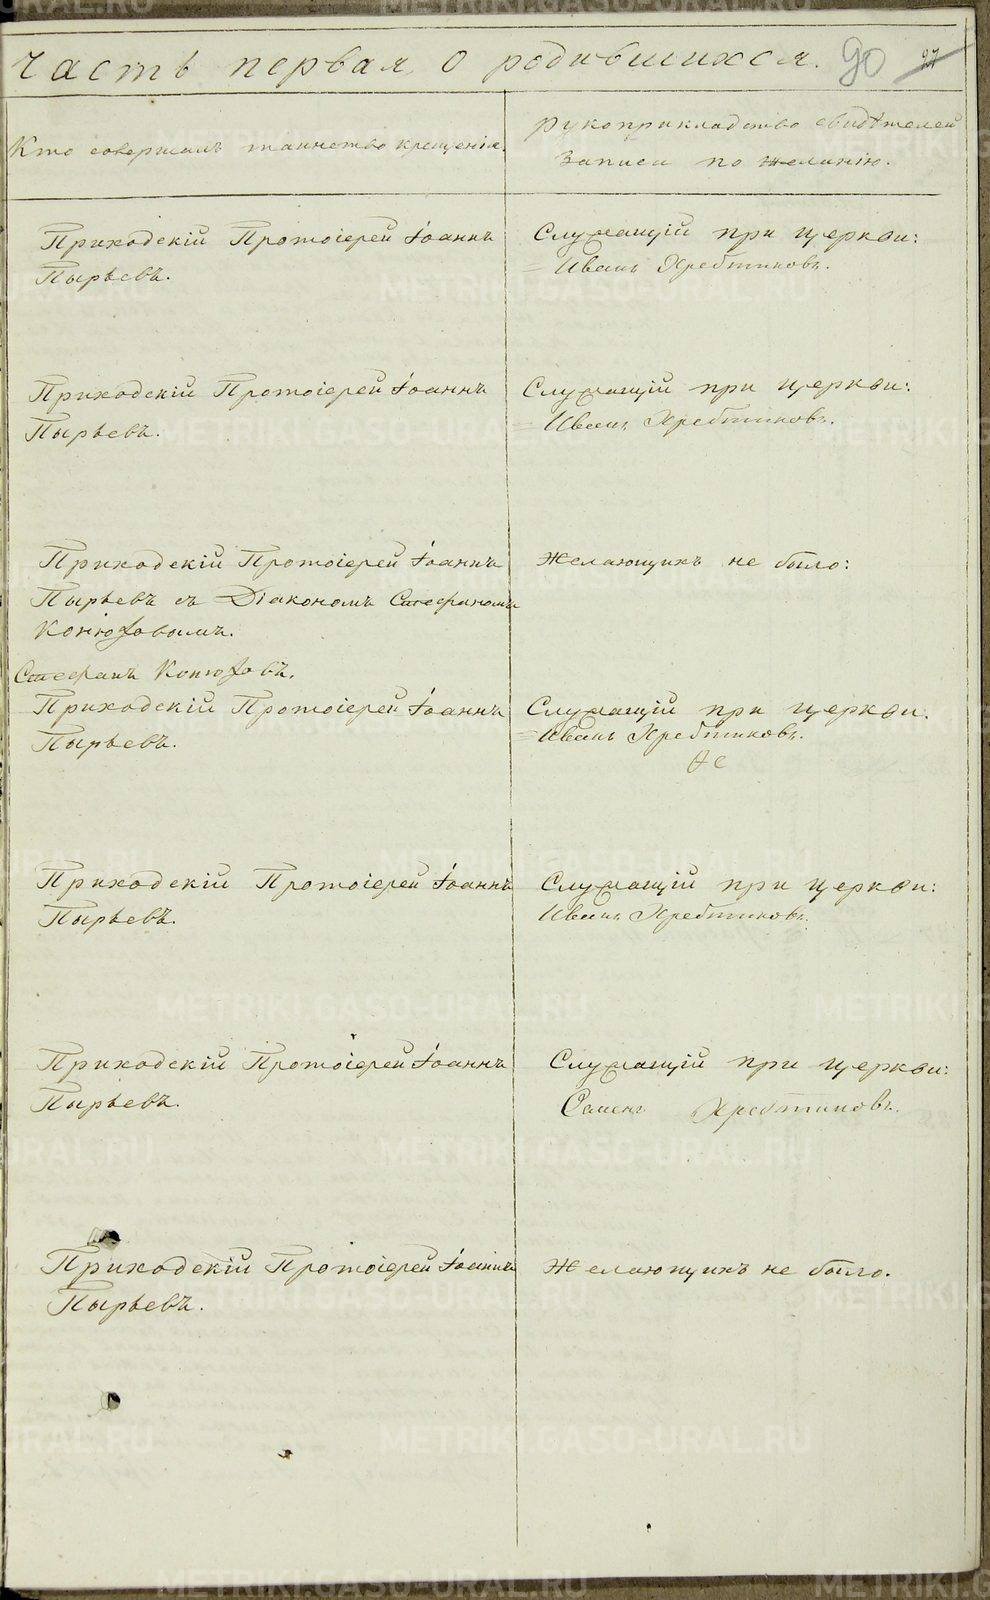 Часть первая, о родившихся. 90 97
Кто совершалъ таинство крещенія.
Рукоприкладство свидѣтелей
записи по желанію.
Приходскій Протоіерей Іоаннъ
Пырьевъ.
Служащій при церкви:
Иванъ Хребтиковъ.
Приходскій Протоіерей Іоаннъ
Пырьевъ.
Служащій при церкви:
Иванъ Хребтиковъ.
Приходскій Протоіерей Іоаннъ
Пырьевъ съ Діакономъ Стефаномъ
Конюховымъ.
Стефанъ Конюховъ.
Желающихъ не было:
Приходскій Протоіерей Іоаннъ
Пырьевъ.
Служащій при церкви.
Иванъ Хребтиковъ.
Приходскій Протоіерей Іоаннъ
Пырьевъ.
Служащій при церкви:
Иванъ Хребтиковъ.
Приходскій Протоіерей Іоаннъ
Пырьевъ.
Служащій при церкви:
Семенъ Хребтиковъ.
Приходскій Протоіерей Іоаннъ
Пырьевъ.
Желающихъ не было.
METRIKI.GASO-URAL.RU